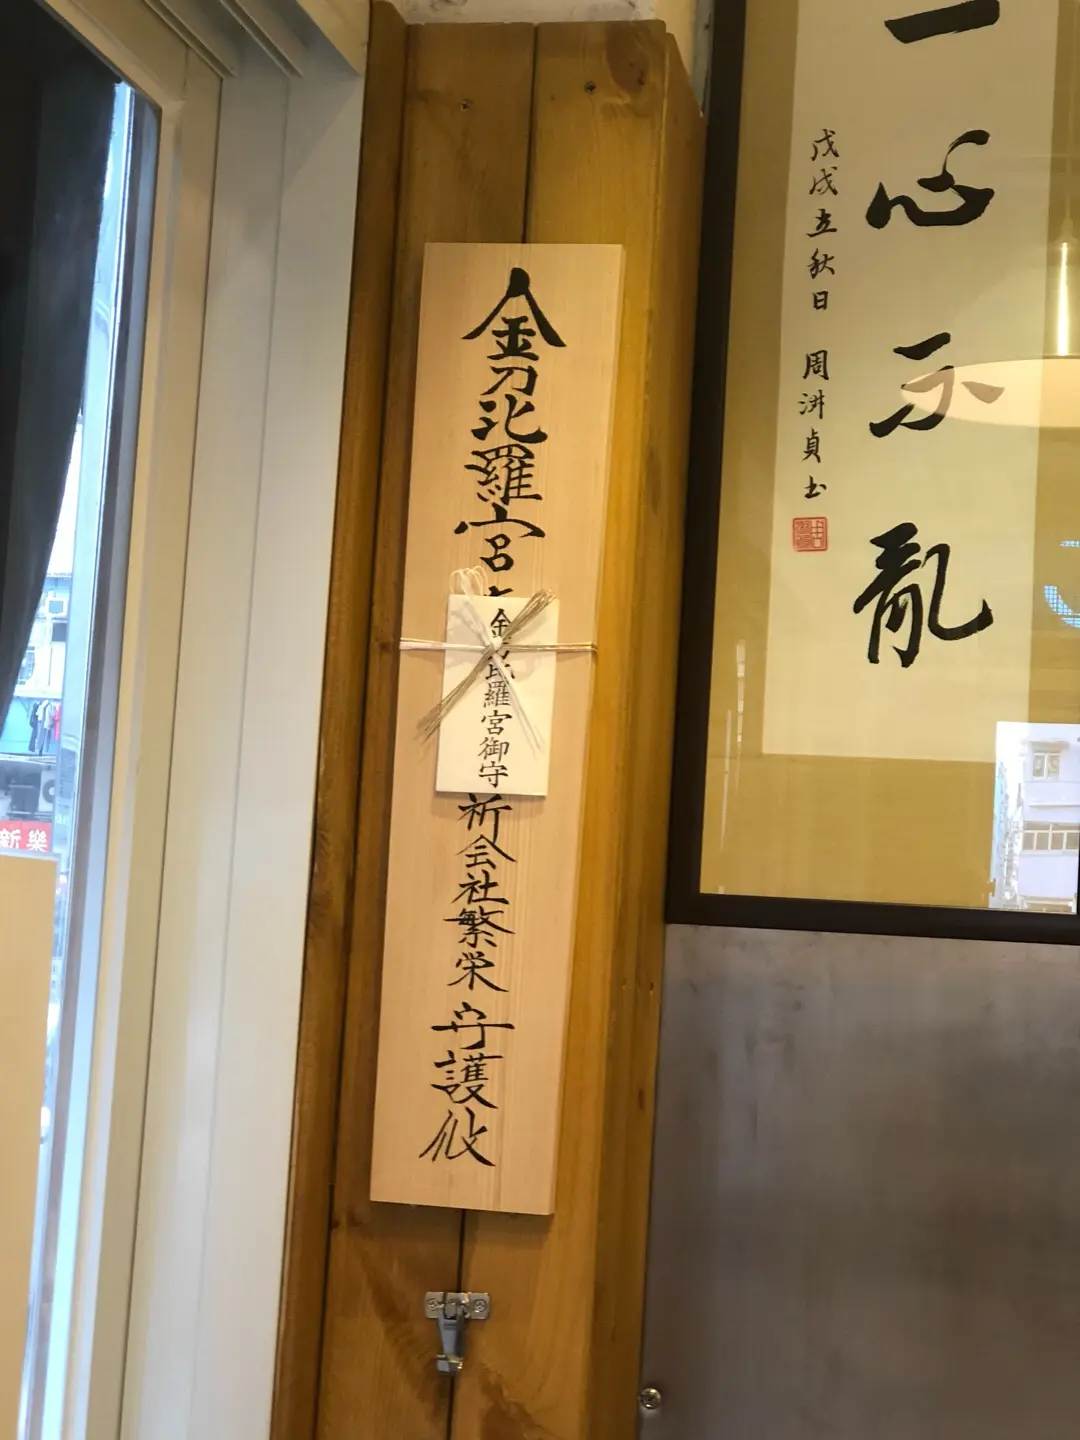 一心不亂
戊戌立秋日 周汫貞書
金刀比羅宮
金刀比羅宮御守
祈会社繁栄守護攸
新樂